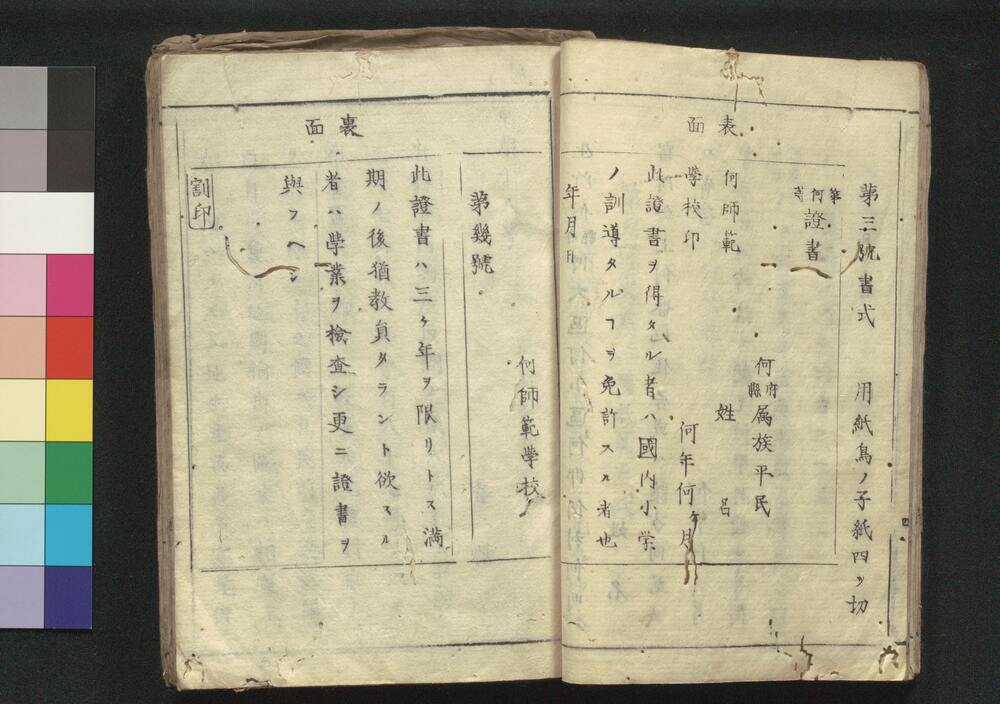 第三號書式 用紙鳥ノ子紙四ツ切
表面
第何等
證書
何府縣属族平民
姓 名
何年何ヶ月
何師範
學校印
此證書ヲ得タル者ハ國内小学
ノ訓導タルヿヲ免許スル者也
年月日
四
何師範學校
第幾號
裏面
此證書ハ三ヶ年ヲ限リトス満
期ノ後猶教員タラント欲スル
者ハ学業ヲ檢査シ更ニ證書ヲ
與フヘシ
割印